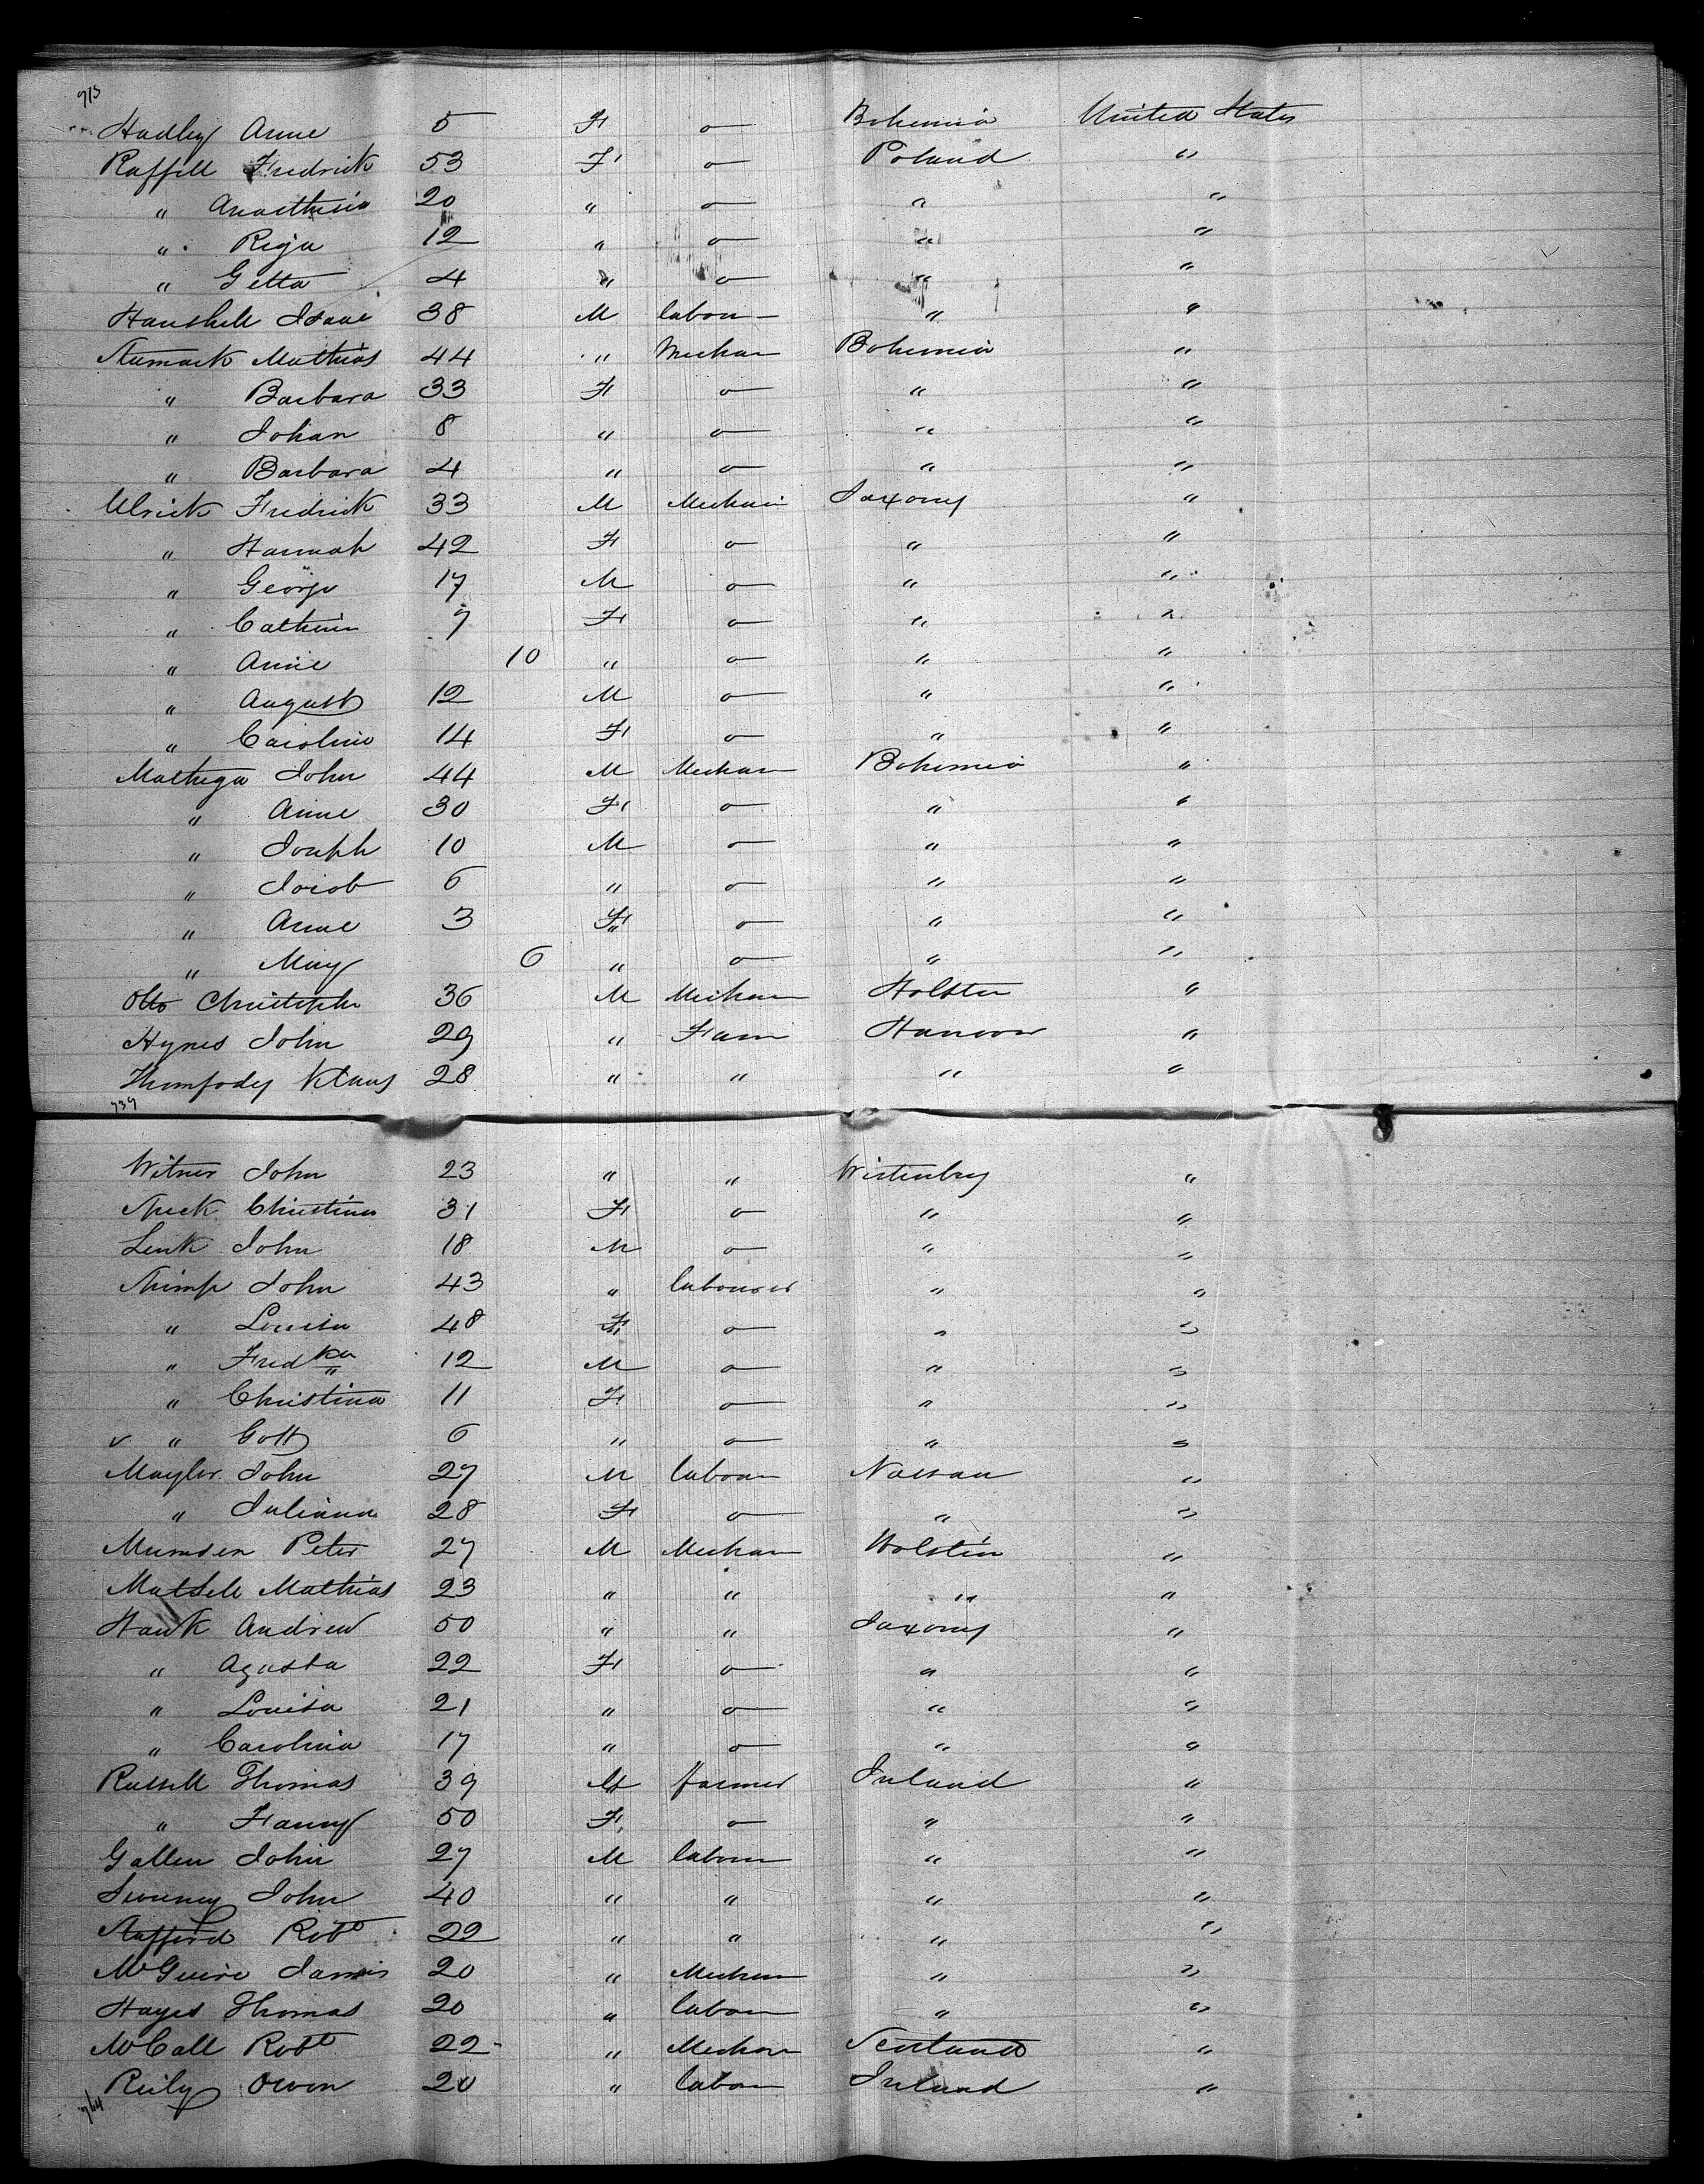 713
Hadley Anne 5 F o Bohemia United States
Raffell Fredrick 53 F o Poland "
" Anasthesia 20 " o " "
" Reja 12 " o " "
" Getta 4 " o " "
Haushell Isaac 38 M labour " "
Mathias 44 " Mechan Bohemia "
" Barbara 33 F o " "
" Johan 8 " o " "
" Barbara 4 " o " "
Ulrick Fredrick 33 M Mechani Saxony "
" Hannah 42 F o " "
" George 17 M o " "
" Cathrin 7 F o " "
" Annie 10 " o " "
" August 12 M o " "
" Caroline 14 F o " "
Mathega John 44 M Mechan Bohemia "
" Anne 30 F o " "
" Joseph 10 M o " "
" Jacob 6 " o " "
" Anne 3 F o " "
" May 6 " o " "
Otto Christophe 36 M Mechan Holsten "
Hynes John 29 " Farm Hanover "
Klaus 28 " " " "
739
Witner John 23 " " Wirtenbrg "
Speck Christina 31 F o " "
Lenk John 18 M o " "
John 43 " labourer " "
" Louisa 48 F o " "
" Fredka 12 M o " "
" Christina 11 F o " "
v " Gott 6 " o " "
Mayler John 27 M labour Nassau "
" Juliana 28 F o " "
Mumsen Peter 27 M Mechan Holstein "
Mathias 23 " " " "
Hauk Andrew 50 " " Saxony "
" Agusta 22 F o " "
" Louisa 21 " o " "
" Carolina 17 " o " "
Russell Thomas 39 M farmer Ireland "
" Fanny 50 F o " "
Gallen John 27 M labour " "
Sweeney John 40 " " " "
Stafford Robt 22 " " " "
McGuire James 20 " Mechan " "
Hayes Thomas 20 " labour " "
McCall Robt 22 " Mechan Scotland "
Reily Owen 20 " labour Ireland "
764